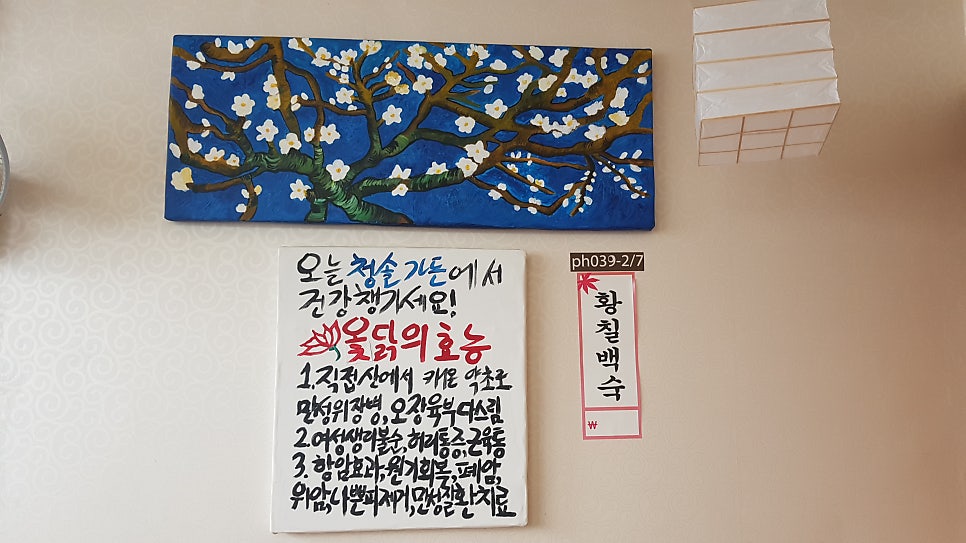 오늘 청솔가든에서
건강챙기세요!
옻닭의효능
1.직접산에서 캐온 약초로
만성위장병,오장육부다스림
2.여성생리불순,허리통증,근육통
3.항암효과,원기회복,폐암,
위암,나쁜피제거,만성질환치료
ph039-2/7
황칠백숙
₩